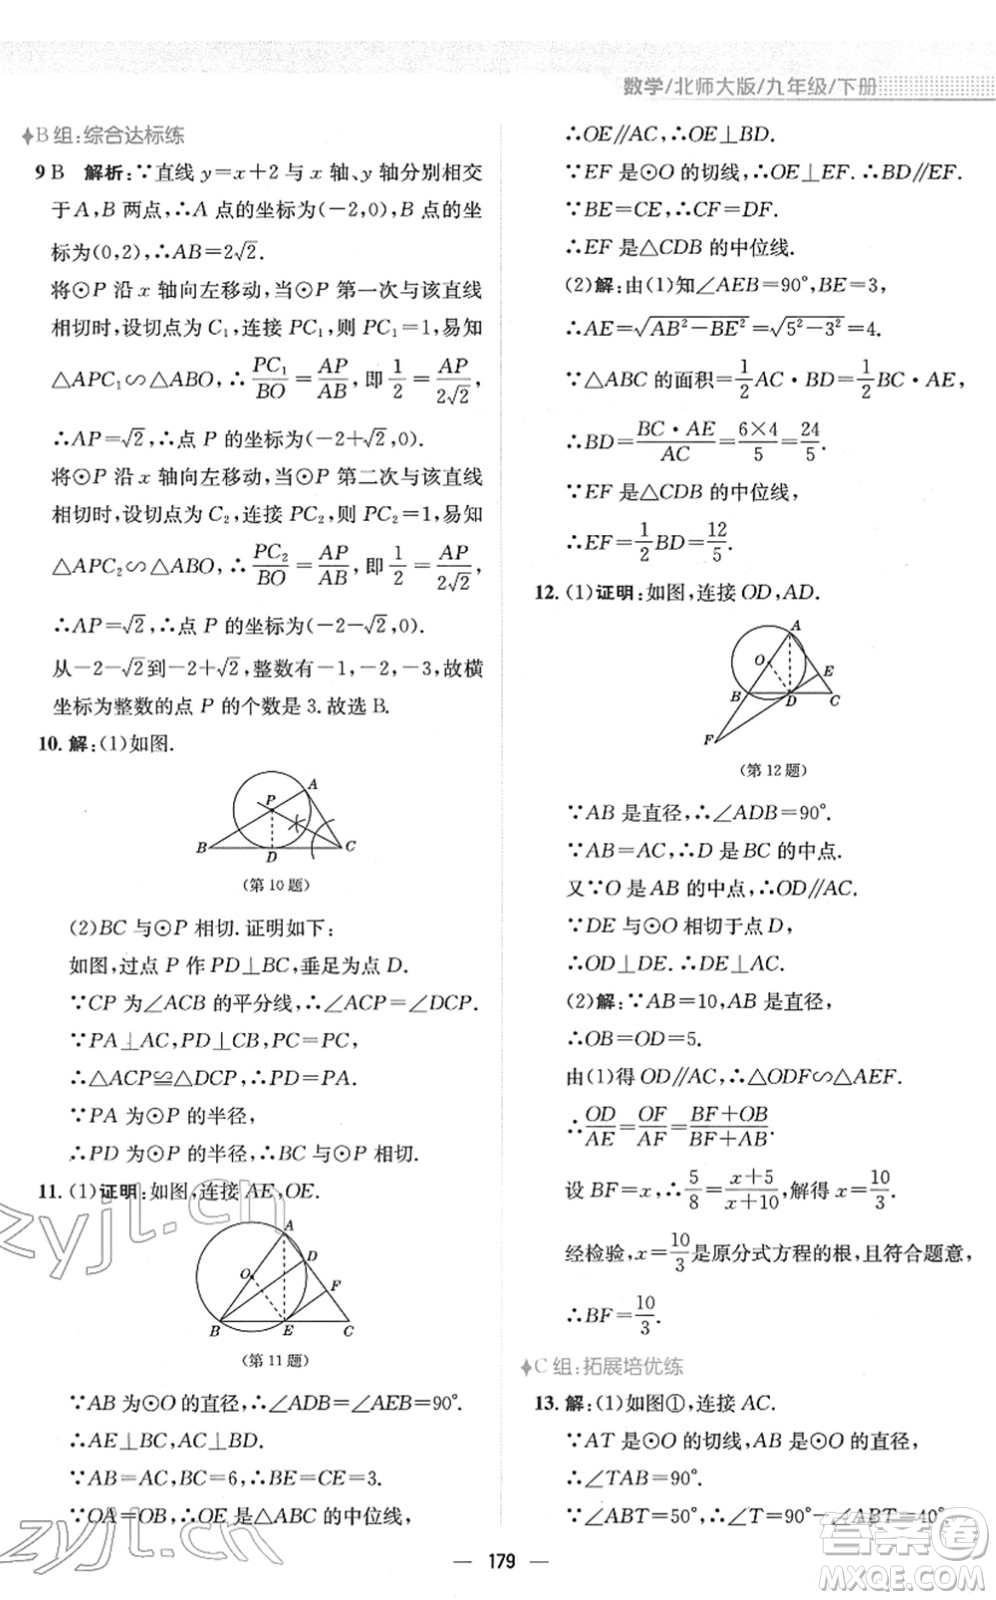 数学/北师大版/九年级/下册
B组:综合达标练
9 B 解析:∵直线 y=x+2 与 x 轴、y 轴分别相交
于 A,B 两点,∴A 点的坐标为(-2,0),B 点的坐
标为(0,2),∴AB=2√2.
将⊙P 沿 x 轴向左移动,当⊙P 第一次与该直线
相切时,设切点为 C₁,连接 PC₁,则 PC₁=1,易知
△APC₁∽△ABO,∴PC₁/BO=AP/AB,即1/2=AP/2√2,
∴AP=√2,∴点 P 的坐标为(-2+√2,0).
将⊙P 沿 x 轴向左移动,当⊙P 第二次与该直线
相切时,设切点为 C₂,连接 PC₂,则 PC₂=1,易知
△APC₂∽△ABO,∴PC₂/BO=AP/AB,即1/2=AP/2√2,
∴AP=√2,∴点 P 的坐标为(-2-√2,0).
从-2-√2到-2+√2,整数有-1,-2,-3,故横
坐标为整数的点 P 的个数是 3.故选 B.
10. 解:(1)如图.
A
P
B
D
C
(第 10 题)
(2)BC 与⊙P 相切.证明如下:
如图,过点 P 作 PD⊥BC,垂足为点 D.
∵CP 为∠ACB 的平分线,∴∠ACP=∠DCP.
∵PA⊥AC,PD⊥CB,PC=PC,
∴△ACP≌△DCP,∴PD=PA.
∵PA 为⊙P 的半径,
∴PD 为⊙P 的半径,∴BC 与⊙P 相切.
11. (1)证明:如图,连接 AE,OE.
A
D
O
F
B
E
C
(第 11 题)
∵AB 为⊙O 的直径,∴∠ADB=∠AEB=90°.
∴AE⊥BC,AC⊥BD.
∵AB=AC,BC=6,∴BE=CE=3.
∵OA=OB,∴OE 是△ABC 的中位线,
∴OE∥AC,∴OE⊥BD.
∵EF 是⊙O 的切线,∴OE⊥EF.∴BD∥EF.
∵BE=CE,∴CF=DF.
∴EF 是△CDB 的中位线.
(2)解:由(1)知∠AEB=90°,BE=3,
∴AE=√(AB²-BE²)=√(5²-3²)=4.
∵△ABC 的面积=1/2AC·BD=1/2BC·AE,
∴BD=BC·AE/AC=6×4/5=24/5.
∵EF 是△CDB 的中位线,
∴EF=1/2BD=12/5.
12. (1)证明:如图,连接 OD,AD.
A
O
E
B
D
C
F
(第 12 题)
∵AB 是直径,∴∠ADB=90°.
∵AB=AC,∴D 是 BC 的中点.
又∵O 是 AB 的中点,∴OD∥AC.
∵DE 与⊙O 相切于点 D,
∴OD⊥DE.∴DE⊥AC.
(2)解:∵AB=10,AB 是直径,
∴OB=OD=5.
由(1)得 OD∥AC,∴△ODF∽△AEF.
∴OD/AE=OF/AF=BF+OB/BF+AB.
设 BF=x,∴5/8=x+5/x+10,解得 x=10/3.
经检验,x=10/3是原分式方程的根,且符合题意,
∴BF=10/3.
C组:拓展培优练
13. 解:(1)如图①,连接 AC.
∵AT 是⊙O 的切线,AB 是⊙O 的直径,
∴∠TAB=90°.
∵∠ABT=50°,∴∠T=90°-∠ABT=40°.
179
zyjl.cn
zyjl.cn
答案圈
MXQE.COM